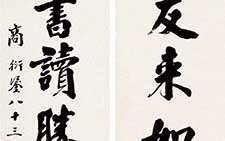 友来如
書讀勝
商衍鎏八十三